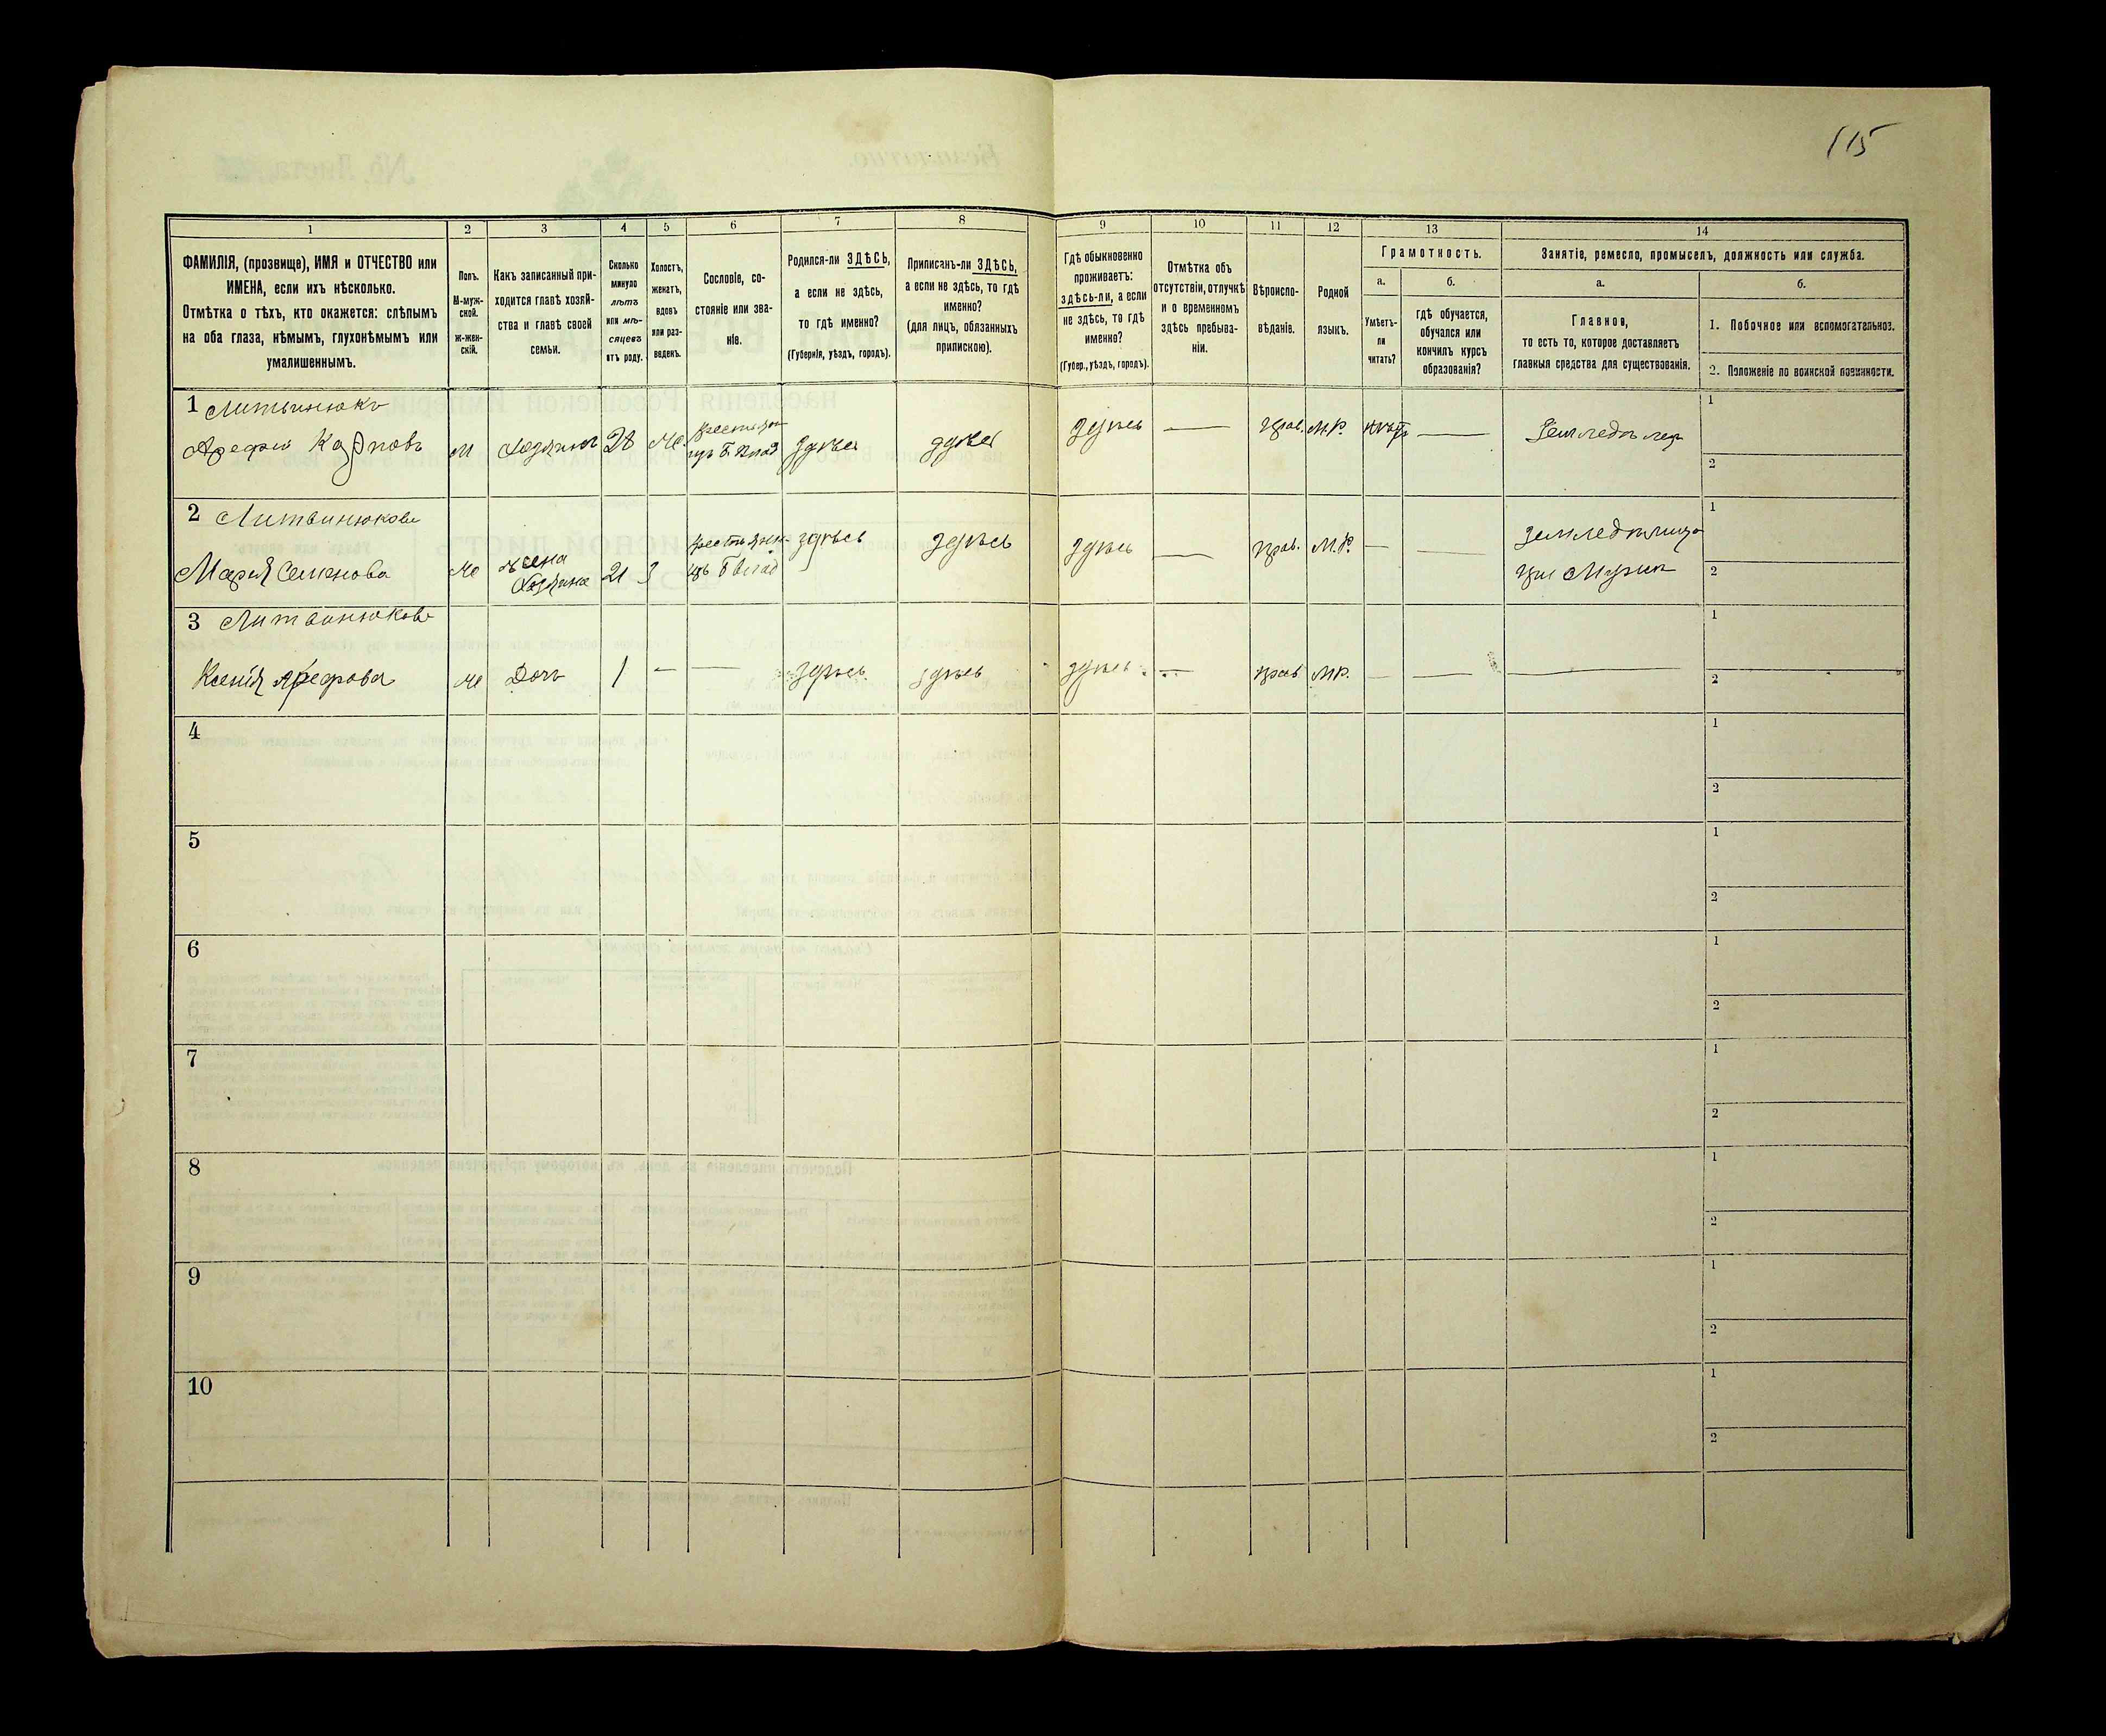 115
1 2 3 4 5 6 7 8 9 10 11 12 13 14
ФАМИЛІЯ, (прозвище), ИМЯ и ОТЧЕСТВО или
ИМЕНА, если ихъ нѣсколько.
Отмѣтка о тѣхъ, кто окажется: слѣпымъ
на оба глаза, нѣмымъ, глухонѣмымъ или
умалишеннымъ.
Полъ.
М-муж-
ской.
ж-жен-
скій.
Какъ записанный при-
ходится главѣ хозяй-
ства и главѣ своей
семьи.
Сколько
минуло
лѣтъ
или мѣ-
сяцевъ
отъ роду.
Холостъ,
женатъ,
вдовъ
или раз-
веденъ.
Сословіе, со-
стояніе или зва-
ніе.
Родился-ли ЗДѢСЬ,
а если не здѣсь,
то гдѣ именно?
(Губернія, уѣздъ, городъ).
Приписанъ-ли ЗДѢСЬ,
а если не здѣсь, то гдѣ
именно?
(для лицъ, обязанныхъ
припискою).
Гдѣ обыкновенно
проживаетъ:
здѣсь-ли, а если
не здѣсь, то гдѣ
именно?
(Губер., уѣздъ, городъ).
Отмѣтка объ
отсутствіи, отлучкѣ
и о временномъ
здѣсь пребыва-
ніи.
Вѣроиспо-
вѣданіе.
Родной
языкъ.
Грамотность.
а.
Умѣетъ-
ли
читать?
б.
гдѣ обучается,
обучался или
кончилъ курсъ
образованія?
Занятіе, ремесло, промыселъ, должность или служба.
а.
Главное,
то есть то, которое доставляетъ
главныя средства для существованія.
б.
1. Побочное или вспомогательное.
2. Положеніе по воинской повинности.
1 Литвинюкъ
Арефій Карповъ м Хозяинъ 28 Ж. Крестьян изъ б. влад здѣсь здѣсь здѣсь — прав. М.Р. — Земледѣлец
1
2
2 Литвинюкова
Марія Семенова ж жена хозяина 21 З Крестьян изъ б влад здѣсь здѣсь здѣсь — прав. М.Р. — — Земледѣлица
при Мужѣ
1
2
3 Литвинюкова
Ксенія Арефова ж Дочь 1 — — здѣсь здѣсь здѣсь — прав М.Р. — — —
1
2
4
1
2
5
1
2
6
1
2
7
1
2
8
1
2
9
1
2
10
1
2